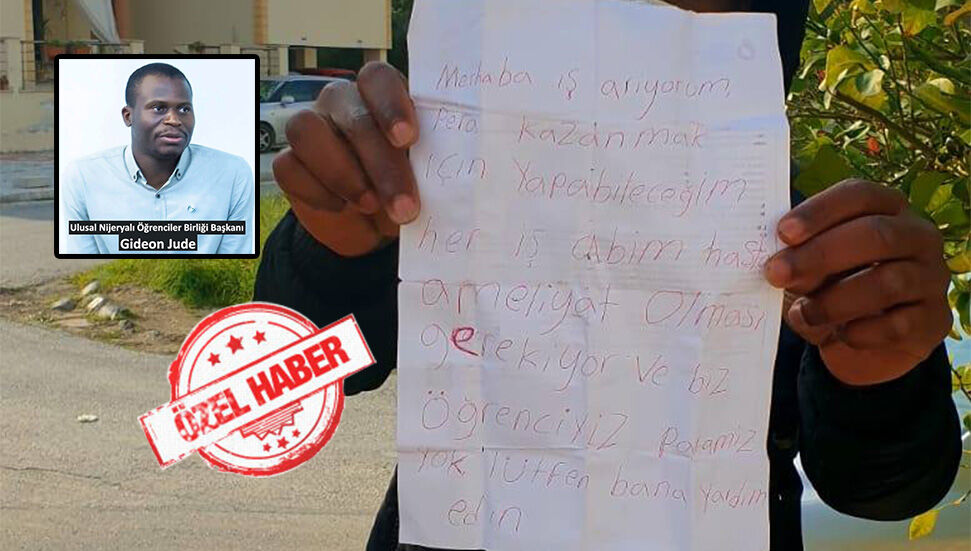 Merhaba iş arıyorum
Para kazanmak
için yapabileceğim
her iş abim hasta
ameliyat olması
gerekiyor ve biz
öğrenciyiz paramız
yok lütfen bana yardım
edin
Ulusal Nijeryalı Öğrenciler Birliği Başkanı
Gideon Jude
ÖZEL HABER